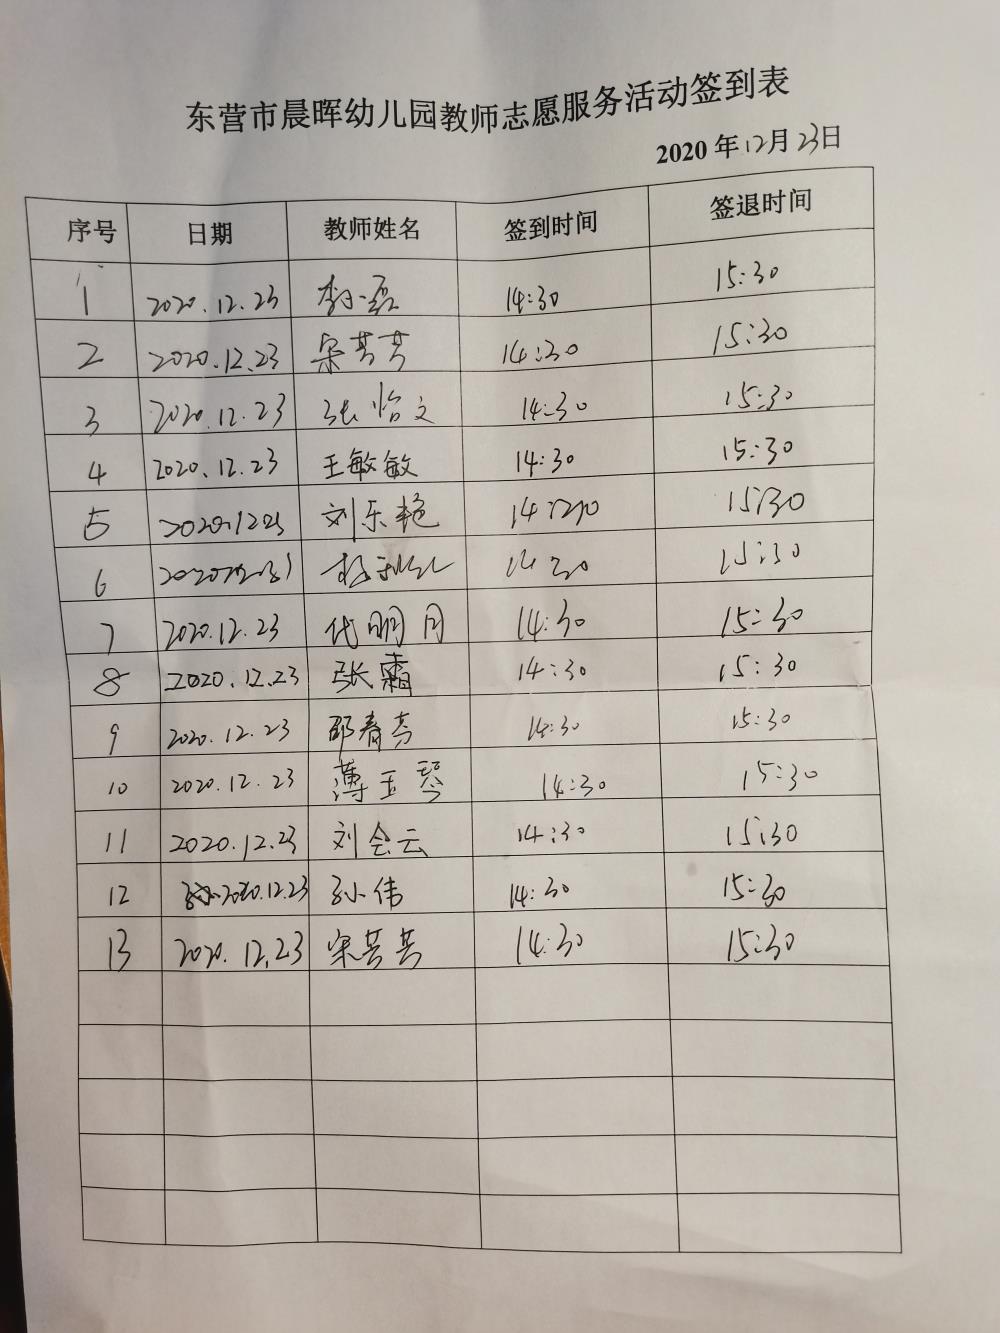 东营市晨晖幼儿园教师志愿服务活动签到表
2020年12月23日
序号 日期 教师姓名 签到时间 签退时间
1 2020.12.23 14:30 15:30
2 2020.12.23 宋芳芳 14:30 15:30
3 2020.12.23 张怡文 14:30 15:30
4 2020.12.23 王敏敏 14:30 15:30
5 2020.12.23 刘乐艳 14:30 15:30
6 15:30
7 2020.12.23 代明月 14:30 15:30
8 2020.12.23 张霜 14:30 15:30
9 2020.12.23 邵春芳 14:30 15:30
10 2020.12.23 薄玉琴 14:30 15:30
11 2020.12.23 刘会云 14:30 15:30
12 2020.12.23 孙伟 14:30 15:30
13 2020.12.23 宋芸芸 14:30 15:30